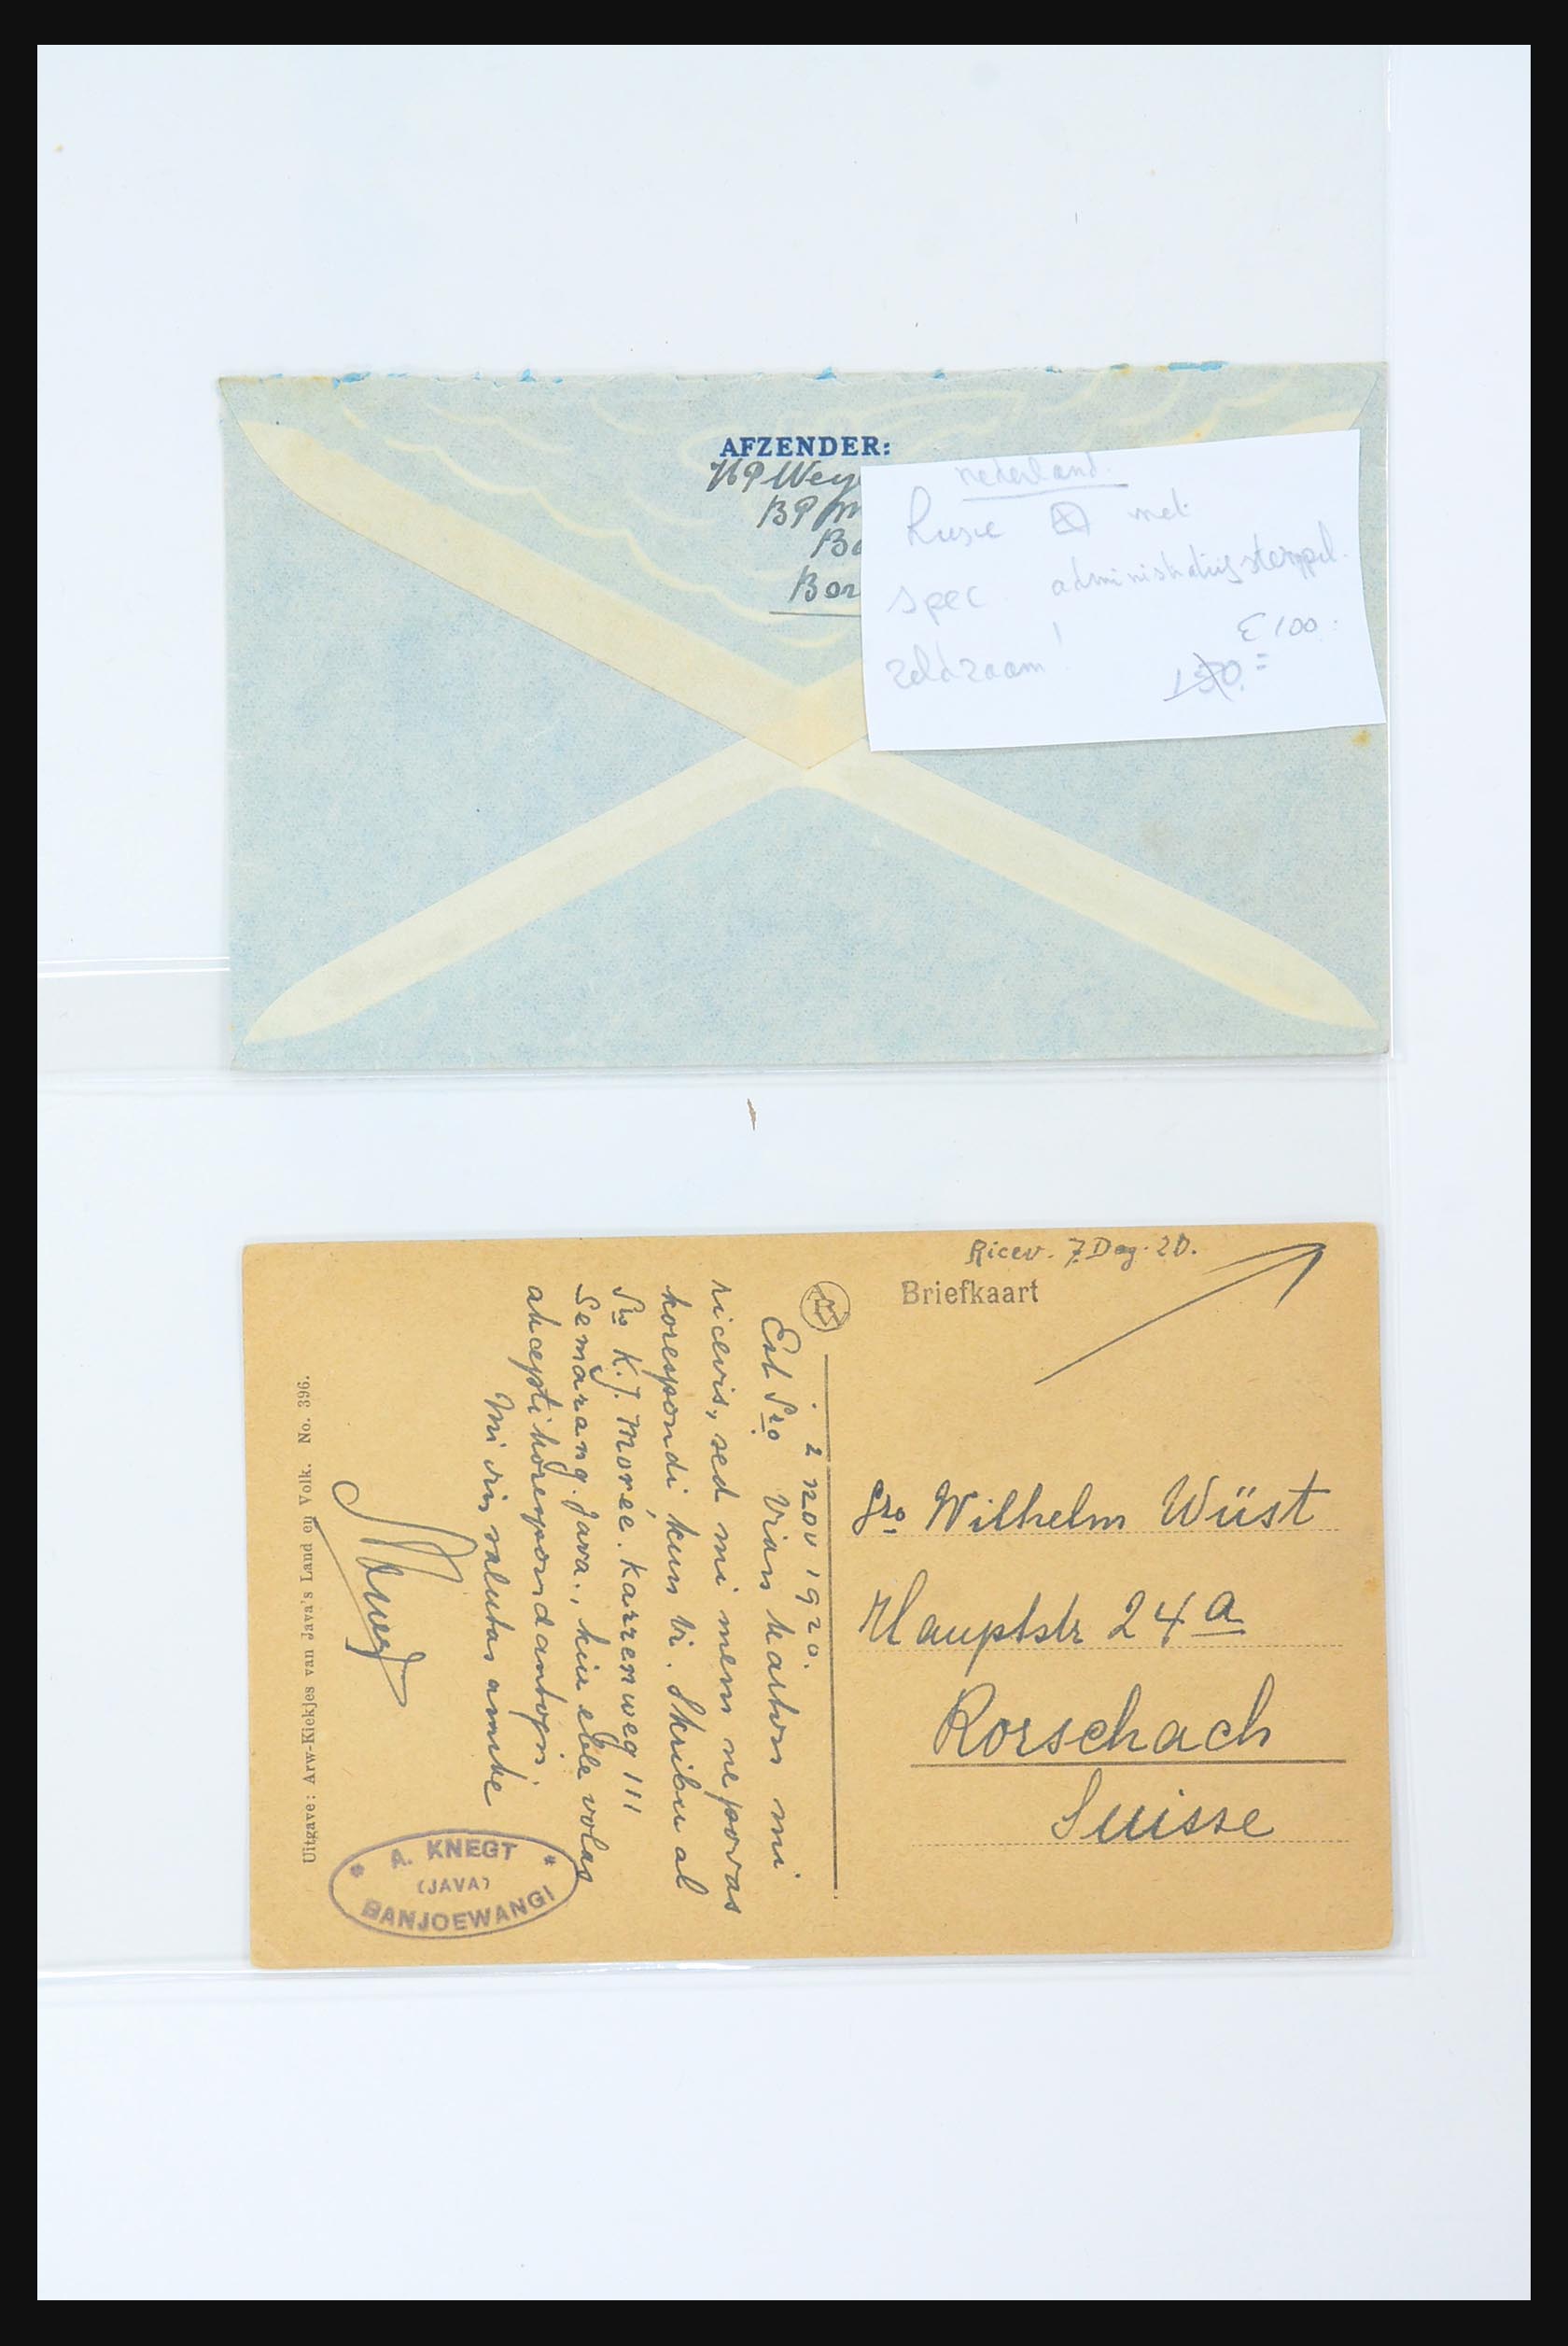 AFZENDER:
HP Wey
BP M
Bo
Bor
nederland.
met
spec. administratiestempel.
zeldzaam!
€100.
150.=
Ricev. 7. Dec. 20.
Briefkaart
Sro Wilhelm Wüst
Hauptstr 24a
Rorschach
Suisse
2 nov 1920.
Est. Sro Vian karton mi
ricevis, sed mi mem ne povas
korespondi kun Vi. Skribu al
Sro K.J. Morée. Karrenweg 111
Semarang. Java., kiu eble volas
akcepti korespondantojn.
Mi vin salutas amike
A. KNEGT
(JAVA)
BANJOEWANGI
Uitgave: Arw-Kiekjes van Java's Land en Volk. No. 396.